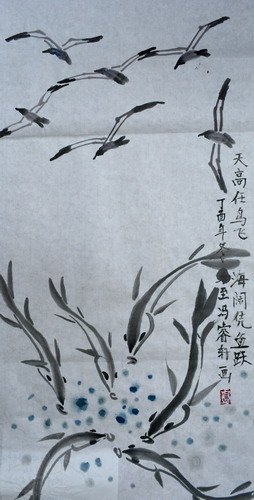 天高任鸟飞 海阔凭鱼跃
丁酉年冬至冯睿轩画